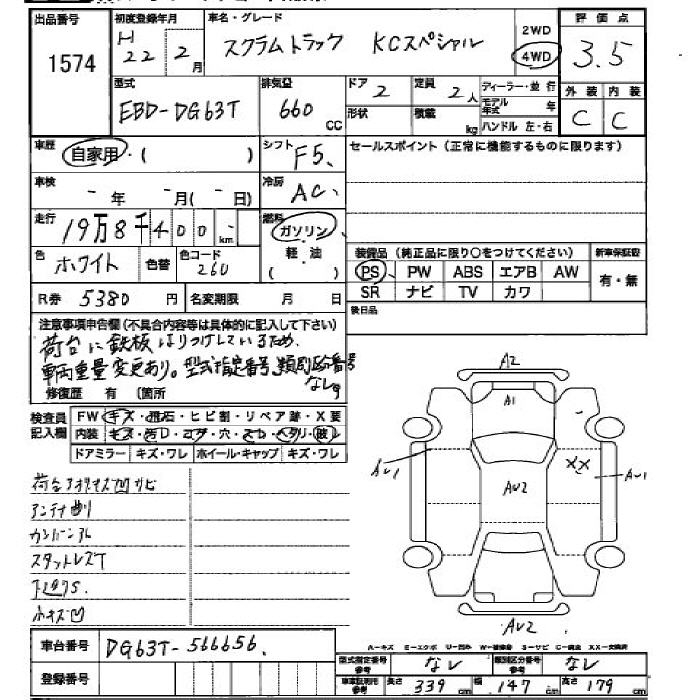 出品番号 初度登録年月 車名・グレード 評価点
1574 H 22年 2月 スクラムトラック KCスペシャル 2WD 4WD 3.5
型式 排気量 ドア 2 定員 2人 ディーラー・並行 外装 内装
EBD-DG63T 660 CC 形状 積載 kg モデル年式 年 C C
ハンドル 左・右
車歴 自家用・( ) シフト F5、 セールスポイント(正常に機能するものに限ります)
車検 - 年 - 月(- 日) 冷房 AC、
走行 19万8千400km 燃料 ガソリン
軽・油
( )
色 ホワイト 色替 色コード 260 装備品(純正品に限り○をつけてください) 新車保証書
PS PW ABS エアB AW 有・無
R券 5380円 名変期限 月 日 SR ナビ TV カワ
後日品
注意事項申告欄(不具合内容等は具体的に記入して下さい)
荷台に鉄板はりつけしているため、
車両重量変更あり。型式指定番号、類別区分番号
なし。
修復歴 有 [箇所
検査員記入欄 FW キズ・飛石・ヒビ割・リペア跡・X要
内装
ドアミラー キズ・ワレ ホイール・キャップ キズ・ワレ
アンテナ曲り
スタットレスT
下廻りS.
小キズ凹
A2
A1
AU1
XX
AU1
AU2
AU2
車台番号 DG63T-566656.
登録番号
A-キズ E-エクボ U-凹み S-サビ C-腐食 XX-交換済
型式指定番号 なし 類別区分番号 なし
車車証明用参考 長さ 339cm 幅 147cm 高さ 179cm